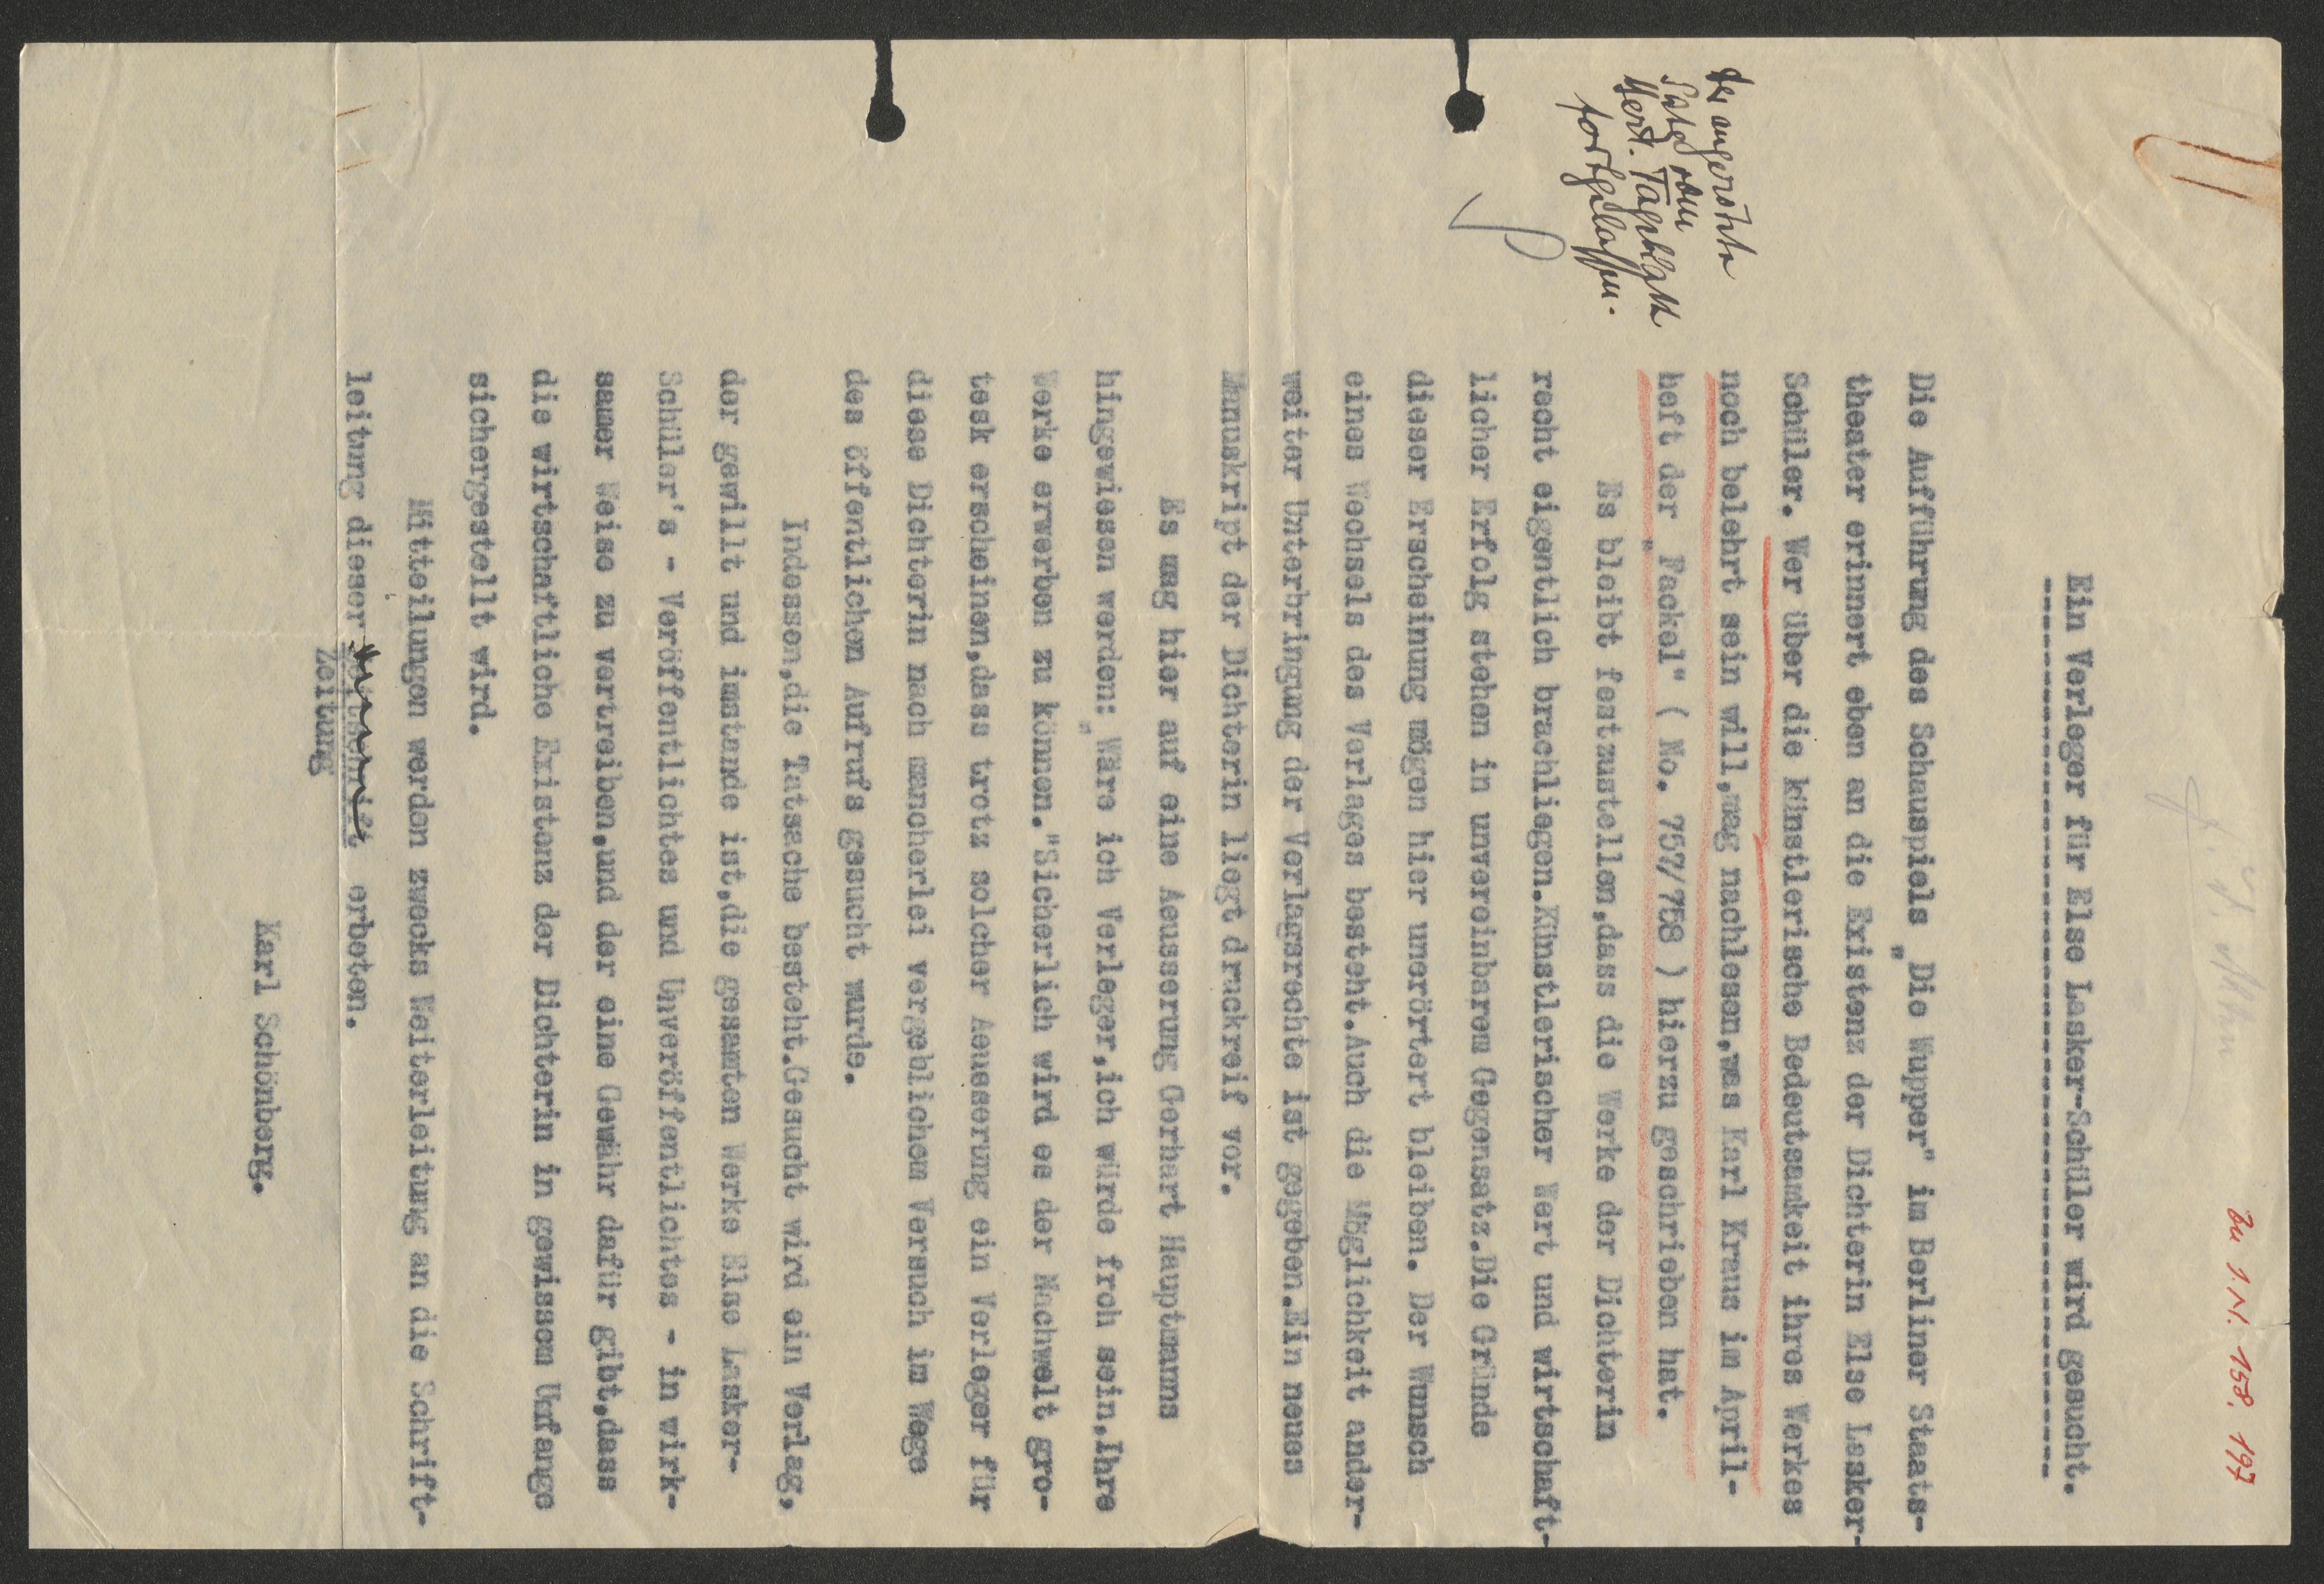 Zu I.N. 158.197
Ein Verleger für Else Lasker-Schüler wird gesucht.
Die Aufführung des Schauspiels „Die Wupper" im Berliner Staats-
theater erinnert eben an die Existenz der Dichterin Else Lasker-
Schüler. Wer über die künstlerische Bedeutsamkeit ihres Werkes
noch belehrt sein will,mag nachlesen,was Karl Kraus im April-
heft der „Fackel" ( No. 757/758 ) hierzu geschrieben hat.
der angerötete
Satz vom
Berl. Tageblatt
fortgelassen.
Es bleibt festzustellen,dass die Werke der Dichterin
recht eigentlich brachliegen.Künstlerischer Wert und wirtschaft-
licher Erfolg stehen in unvereinbarem Gegensatz.Die Gründe
dieser Erscheinung mögen hier unerörtert bleiben. Der Wunsch
eines Wechsels des Verlages besteht.Auch die Möglichkeit ander-
weiter Unterbringung der Verlagsrechte ist gegeben.Ein neues
Manuskript der Dichterin liegt druckreif vor.
Es mag hier auf eine Aeusserung Gerhart Hauptmanns
hingewiesen werden: „Wäre ich Verleger,ich würde froh sein,Ihre
Werke erwerben zu können."Sicherlich wird es der Nachwelt gro-
tesk erscheinen,dass trotz solcher Aeusserung ein Verleger für
diese Dichterin nach mancherlei vergeblichem Versuch im Wege
des öffentlichen Aufrufs gesucht wurde.
Indessen,die Tatsache besteht.Gesucht wird ein Verlag,
der gewillt und imstande ist,die gesamten Werke Else Lasker-
Schüler's - Veröffentlichtes und Unveröffentlichtes - in wirk-
samer Weise zu vertreiben,und der eine Gewähr dafür gibt,dass
die wirtschaftliche Existenz der Dichterin in gewissem Umfange
sichergestellt wird.
Mitteilungen werden zwecks Weiterleitung an die Schrift-
leitung dieser Zeitschrift erbeten.
Zeitung
Karl Schönberg.